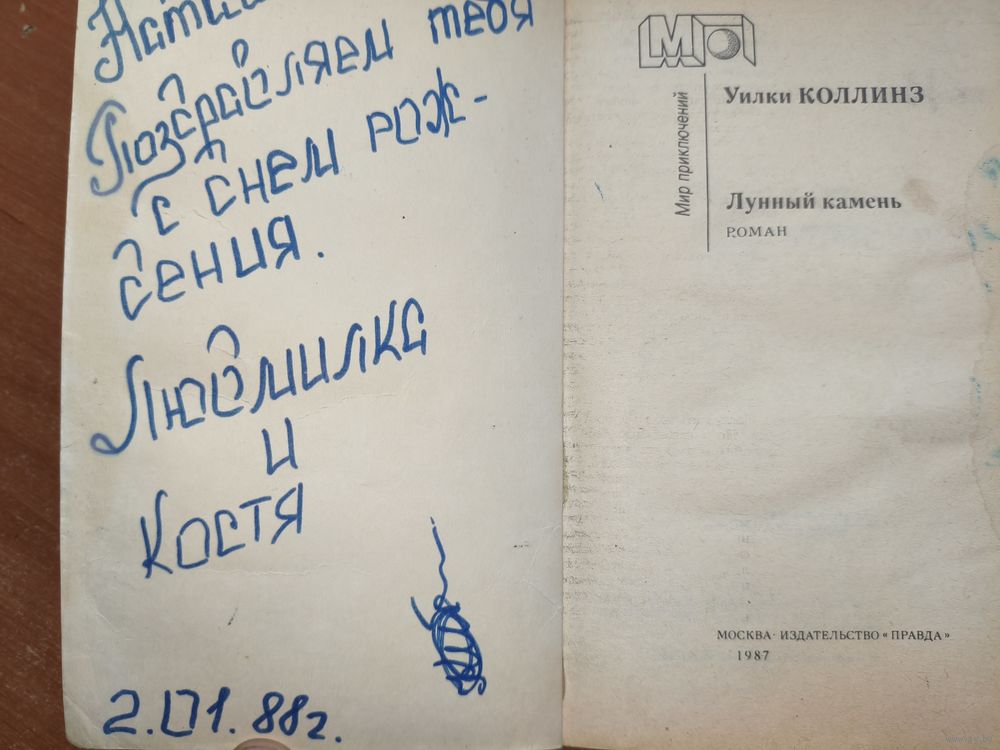 Поздравляем тебя
с днем рож-
дения.
Людмилка
и
Костя
2.01.88г.
МП
Мир приключений
Уилки КОЛЛИНЗ
Лунный камень
РОМАН
МОСКВА · ИЗДАТЕЛЬСТВО «ПРАВДА»
1987